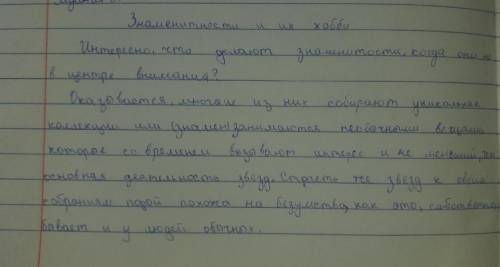 Знаменитности и их хобби
Интересно, что делают знаменитости, когда они не
в центре внимания?
Оказывается, многие из них собирают уникальные
коллекции или (знамен) занимаются необычными вещами,
которое со временем вызывают интерес и не меньший, чем
основная деятельность звезд. Страсть же звезд к своим
собраниям порой похожа на безумство, как это, собственно,
бывает и у людей обычных.